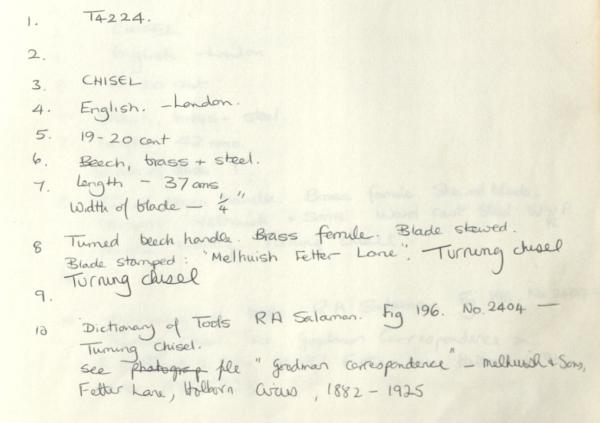 1. T4224.
2.
3. CHISEL
4. English. - London.
5. 19-20 cent
6. Beech, brass + steel.
7. Length - 37 cms
Width of blade - 1/4"
8 Turned beech handle. Brass ferrule. Blade skewed.
Blade stamped: "Melhuish Fetter Lane". Turning chisel
Turning chisel
9.
10 Dictionary of Tools R A Salaman. Fig 196. No. 2404 -
Turning chisel.
see photograp file "Goodman correspondence" - Melhuish & Sons,
Fetter Lane, Holborn Circus, 1882 - 1925